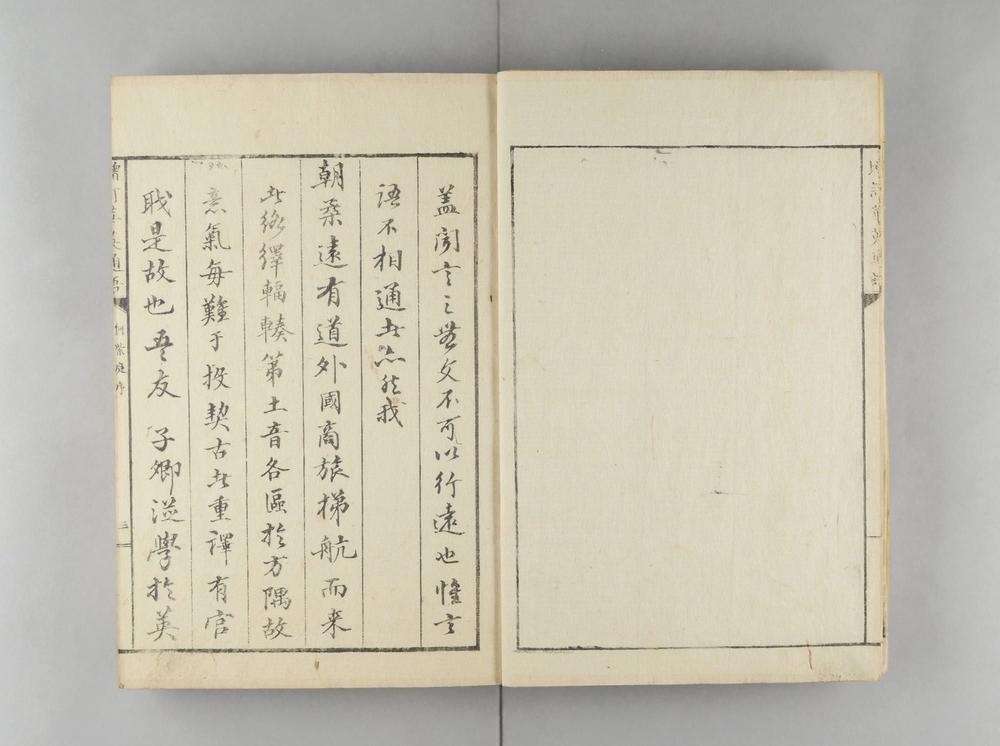 增訂華英通語
蓋聞言之無文不可以行遠也惟言
語不相通者亦然我
朝柔遠有道外國商旅梯航而来
者絡繹輻輳第土音各區於方隅故
意氣每難于投契古者重譯有官
職是故也吾友 子卿從學於英
增訂華英通語 何紫庭序 三